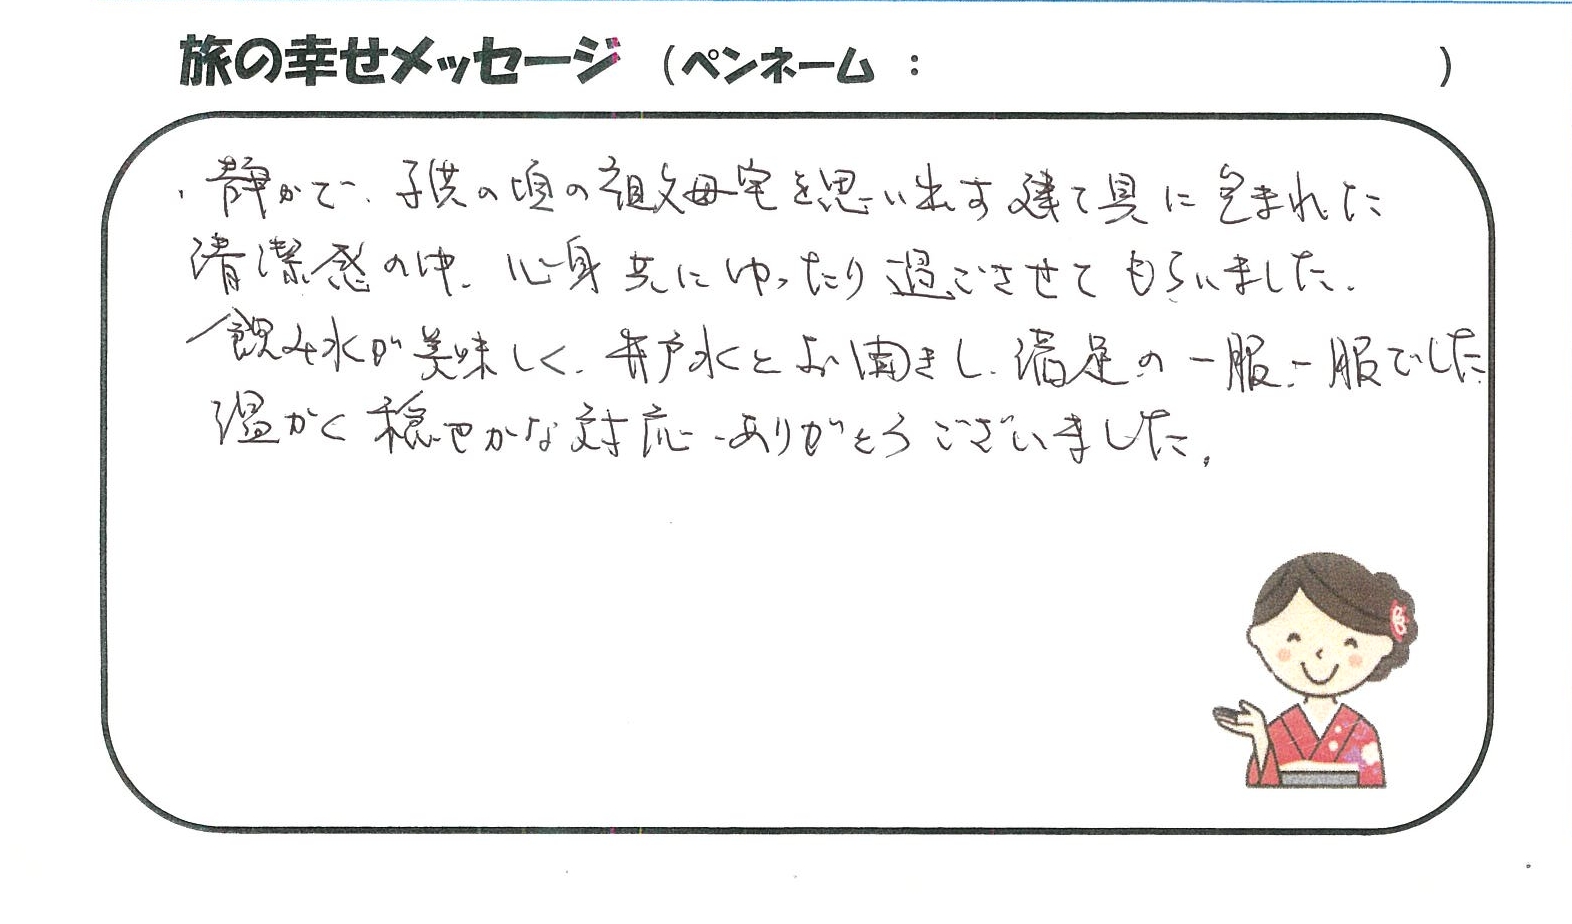 旅の幸せメッセージ (ペンネーム : )
・静かで、子供の頃の祖父母宅を思い出す建て具に包まれた
清潔感の中、心身共にゆったり過ごさせてもらいました。
飲み水が美味しく、井戸水とお聞きし、満足の一服一服でした。
温かく穏やかな対応、ありがとうございました。